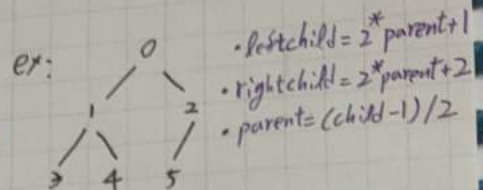 ex:
0
1 2
3 4 5
• leftchild = 2*parent+1
• rightchild = 2*parent+2
• parent = (child-1)/2